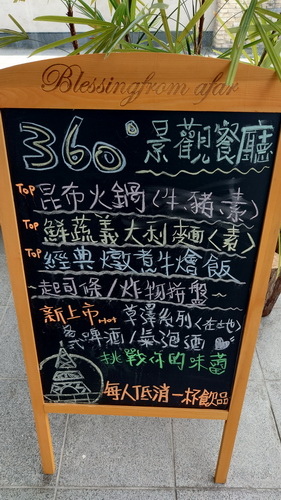 Blessing from afar
360°景觀餐廳
Top 昆布火鍋(牛.豬.素)
Top 鮮蔬義大利麵(素)
Top 經典燉煮牛燴飯
~起司條/炸物拼盤~
新上市 Hot 草漾系列(在地)
各式啤酒/氣泡酒
挑戰你的味蕾
每人低消一杯飲品